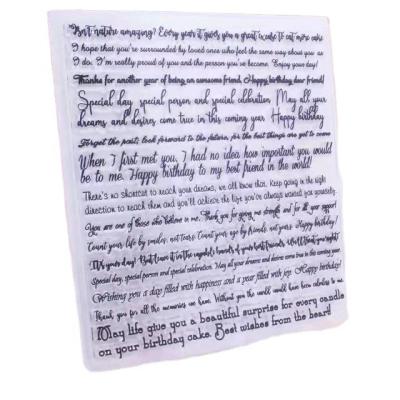 Isn't nature amazing? Every year it gives you a great excuse to eat more cake
I hope that you're surrounded by loved ones who feel the same way about you as
I do. I'm really proud of you and the person you've become. Enjoy your day!
Thanks for another year of being an awesome friend. Happy birthday dear friend!
Special day, special person and special celebration. May all your
dreams and desires come true in this coming year. Happy birthday
Forget the past; look forward to the future, for the best things are yet to come
When I first met you, I had no idea how important you would
be to me. Happy birthday to my best friend in the world!
There's no shortcut to reach your dreams, we all know that. Keep going in the right
direction to reach them and you'll achieve the life you've always wanted for yourself.
You are one of those who believe in me. Thank you for giving me strength and for all your support
Count your life by smiles, not tears. Count your age by friends, not years. Happy birthday!
It's your day! But leave it in the hands of your best friends. We'll
Special day, special person and special celebration. May all your dreams and desires come true in this coming year.
Wishing you a day filled with happiness and a year filled with joy. Happy birthday!
Thank you for all the memories we have. Without you the world would have been colorless to me.
May life give you a beautiful surprise for every candle
on your birthday cake. Best wishes from the heart!